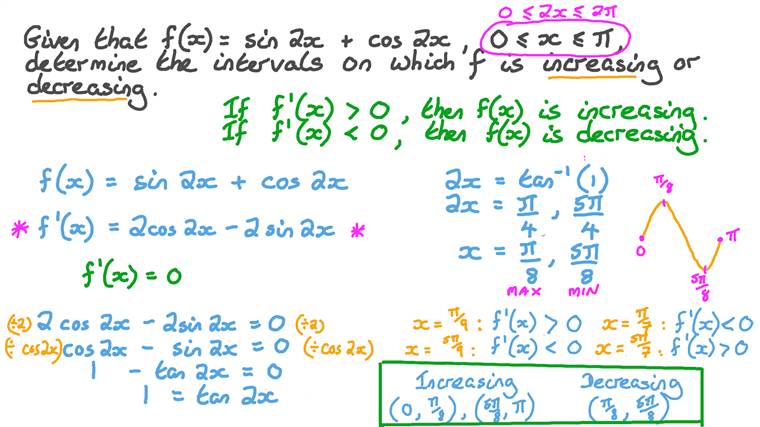 0 ≤ 2x ≤ 2π
Given that f(x) = sin 2x + cos 2x, 0 ≤ x ≤ π,
determine the intervals on which f is increasing or
decreasing.
If f'(x) > 0, then f(x) is increasing.
If f'(x) < 0, then f(x) is decreasing.
f(x) = sin 2x + cos 2x
* f'(x) = 2cos 2x - 2 sin 2x *
f'(x) = 0
(÷2) 2 cos 2x - 2 sin 2x = 0 (÷2)
(÷ cos2x) cos 2x - sin 2x = 0 (÷ cos 2x)
1 - tan 2x = 0
1 = tan 2x
2x = tan⁻¹ (1)
2x = π/4, 5π/4
x = π/8, 5π/8
MAX MIN
π/8
0 π
5π/8
x = π/9 : f'(x) > 0 x = π/7 : f'(x) < 0
x = 5π/9 : f'(x) < 0 x = 5π/7 : f'(x) > 0
Increasing Decreasing
(0, π/8), (5π/8, π) (π/8, 5π/8)